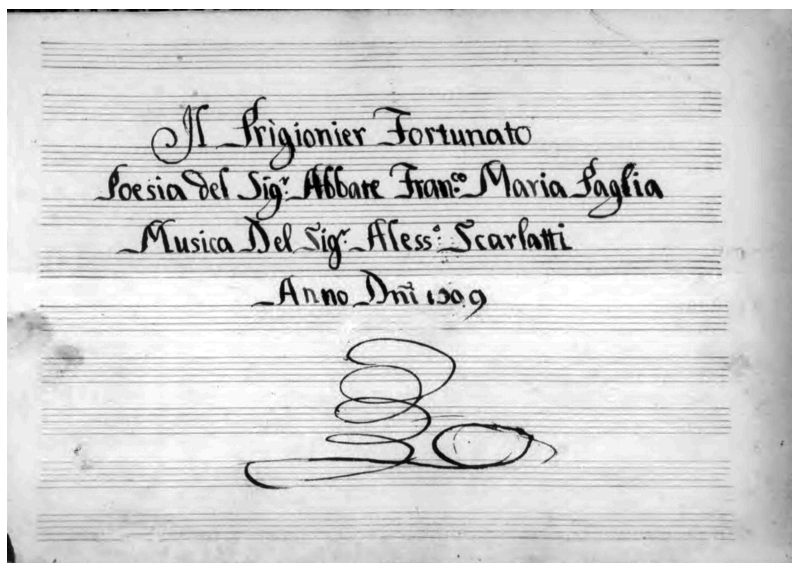 Il Prigionier Fortunato
Poesia del Sig.r Abbate Fran.co Maria Paglia
Musica Del Sig.r Aless.o Scarlatti
Anno Dñi 1909